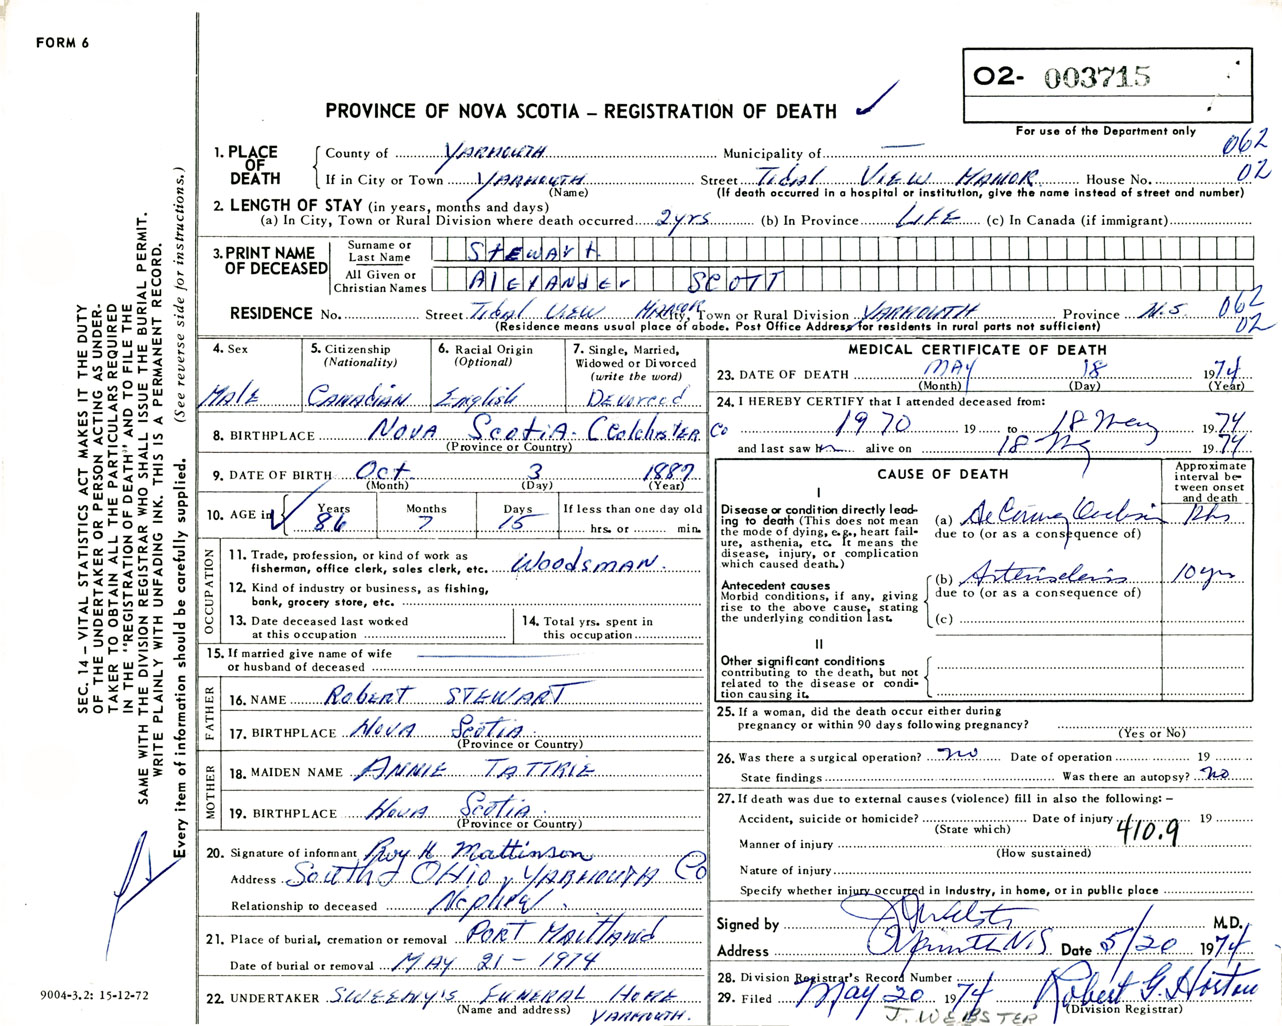 FORM 6
O2- 003715
PROVINCE OF NOVA SCOTIA – REGISTRATION OF DEATH
For use of the Department only
062
02
1. PLACE OF DEATH
County of YARMOUTH Municipality of —
If in City or Town YARMOUTH Street Tidal VIEW MANOR House No.
(Name) (If death occurred in a hospital or institution, give the name instead of street and number)
2. LENGTH OF STAY (in years, months and days)
(a) In City, Town or Rural Division where death occurred 2yrs (b) In Province LIFE (c) In Canada (if immigrant)
3. PRINT NAME OF DECEASED
Surname or Last Name Stewart
All Given or Christian Names Alexander SCOTT
RESIDENCE No. Street Tidal VIEW Manor City, Town or Rural Division YARMOUTH Province N.S. 062
02
(Residence means usual place of abode. Post Office Address for residents in rural parts not sufficient)
4. Sex
Male
5. Citizenship (Nationality)
Canadian
6. Racial Origin (Optional)
English
7. Single, Married, Widowed or Divorced (write the word)
Devorced
8. BIRTHPLACE NOVA SCOTIA- Colchester Co
(Province or Country)
9. DATE OF BIRTH Oct. 3 1887
(Month) (Day) (Year)
10. AGE in
Years Months Days If less than one day old
86 7 15 hrs. or min.
OCCUPATION
11. Trade, profession, or kind of work as fisherman, office clerk, sales clerk, etc. Woodsman.
12. Kind of industry or business, as fishing, bank, grocery store, etc.
13. Date deceased last worked at this occupation
14. Total yrs. spent in this occupation
15. If married give name of wife or husband of deceased
FATHER
16. NAME Robert STEWART
17. BIRTHPLACE Nova Scotia.
(Province or Country)
MOTHER
18. MAIDEN NAME ANNIE TATTRIE
19. BIRTHPLACE Nova Scotia.
(Province or Country)
20. Signature of informant Roy H. Mattinson
Address South OHIO, YARMOUTH Co
Relationship to deceased Nephew.
21. Place of burial, cremation or removal PORT MAITLAND
Date of burial or removal MAY 21 - 1974
22. UNDERTAKER SWEENY'S FUNERAL HOME
(Name and address) YARMOUTH.
MEDICAL CERTIFICATE OF DEATH
23. DATE OF DEATH MAY 18 1974
(Month) (Day) (Year)
24. I HEREBY CERTIFY that I attended deceased from:
1970 19 to 18 May 1974
and last saw him alive on 18 May 1974
CAUSE OF DEATH
Approximate interval between onset and death
I
Disease or condition directly leading to death (This does not mean the mode of dying, e.g., heart failure, asthenia, etc. It means the disease, injury, or complication which caused death.)
(a) Ac Coronary Occlusion
due to (or as a consequence of)
Antecedent causes
Morbid conditions, if any, giving rise to the above cause, stating the underlying condition last.
(b) Arteriosclerosis 10 yrs
due to (or as a consequence of)
(c)
II
Other significant conditions contributing to the disease or death, but not related to the disease or condition causing it.
25. If a woman, did the death occur either during pregnancy or within 90 days following pregnancy?
(Yes or No)
26. Was there a surgical operation? no Date of operation 19
State findings Was there an autopsy? no
27. If death was due to external causes (violence) fill in also the following: –
Accident, suicide or homicide? Date of injury 19
(State which)
410.9
Manner of injury
(How sustained)
Nature of injury
Specify whether injury occurred in Industry, in home, or in public place
Signed by M.D.
Address Yarmouth N.S. Date 5/20 1974
28. Division Registrar's Record Number
29. Filed May 20 1974 Robert G. Horton
(Division Registrar)
J. WEBSTER
SEC. 14 – VITAL STATISTICS ACT MAKES IT THE DUTY
OF THE UNDERTAKER OR PERSON ACTING AS UNDER-
TAKER TO OBTAIN ALL THE PARTICULARS REQUIRED
IN THE "REGISTRATION OF DEATH" AND TO FILE THE
SAME WITH THE DIVISION REGISTRAR WHO SHALL ISSUE THE BURIAL PERMIT.
WRITE PLAINLY WITH UNFADING INK. THIS IS A PERMANENT RECORD.
Every item of information should be carefully supplied. (See reverse side for instructions.)
9004-3.2: 15-12-72